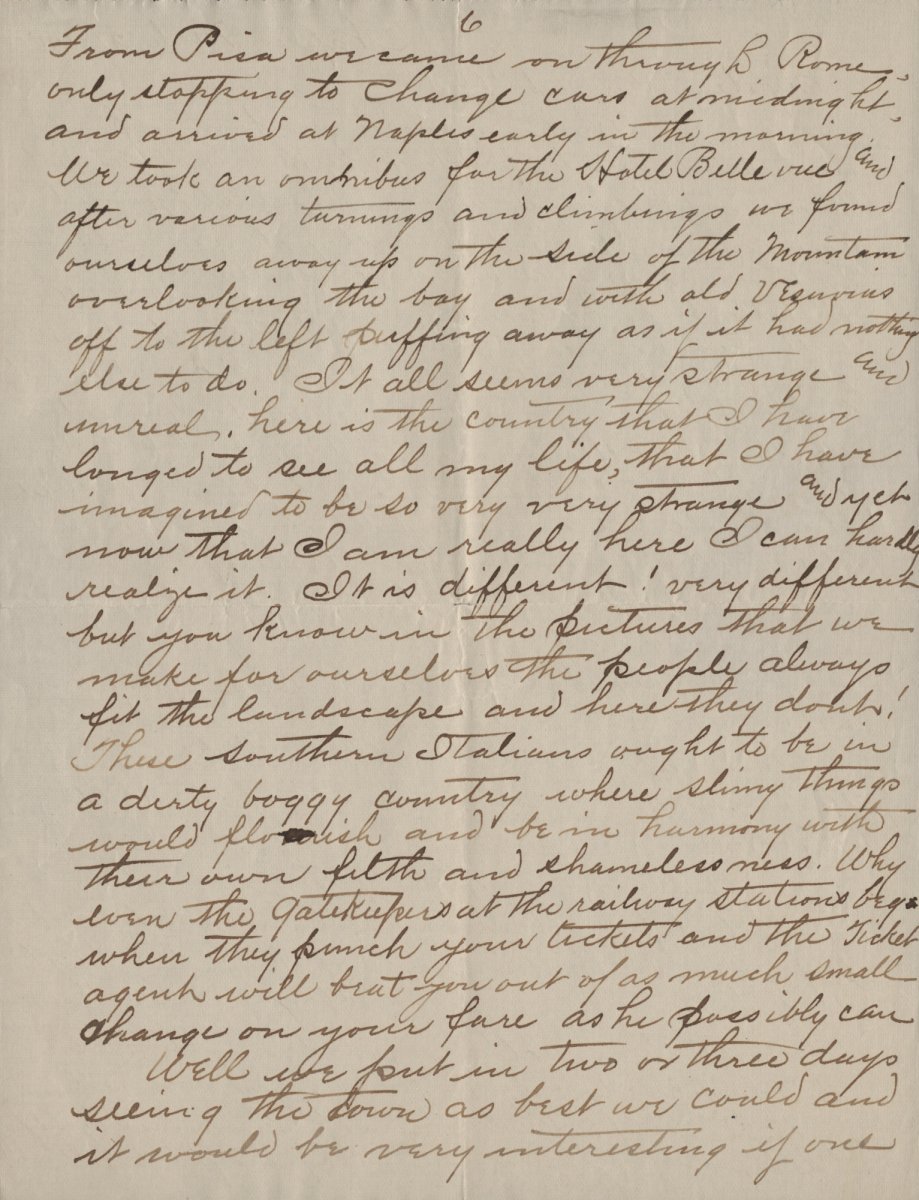 6
From Pisa we came on through Rome,
only stopping to change cars at midnight,
and arrived at Naples early in the morning.
We took an omnibus for the Hotel Belle vue and
after various turnings and climbings we found
ourselves away up on the side of the Mountain
overlooking the bay and with old Vesuvius
off to the left puffing away as if it had nothing
else to do. It all seems very strange and
unreal, here is the country that I have
longed to see all my life, that I have
imagined to be so very very strange and yet
now that I am really here I can hardly
realize it. It is different! very different
but you know in the pictures that we
make for ourselves the people always
fit the landscape and here they dont!
These southern Italians ought to be in
a dirty boggy country where slimy things
would flourish and be in harmony with
their own filth and shamelessness. Why
even the Gatekeepers at the railway stations beg
when they punch your tickets and the Ticket
agent will beat you out of as much small
change on your fare as he possibly can
Well we put in two or three days
seeing the town as best we could and
it would be very interesting if one